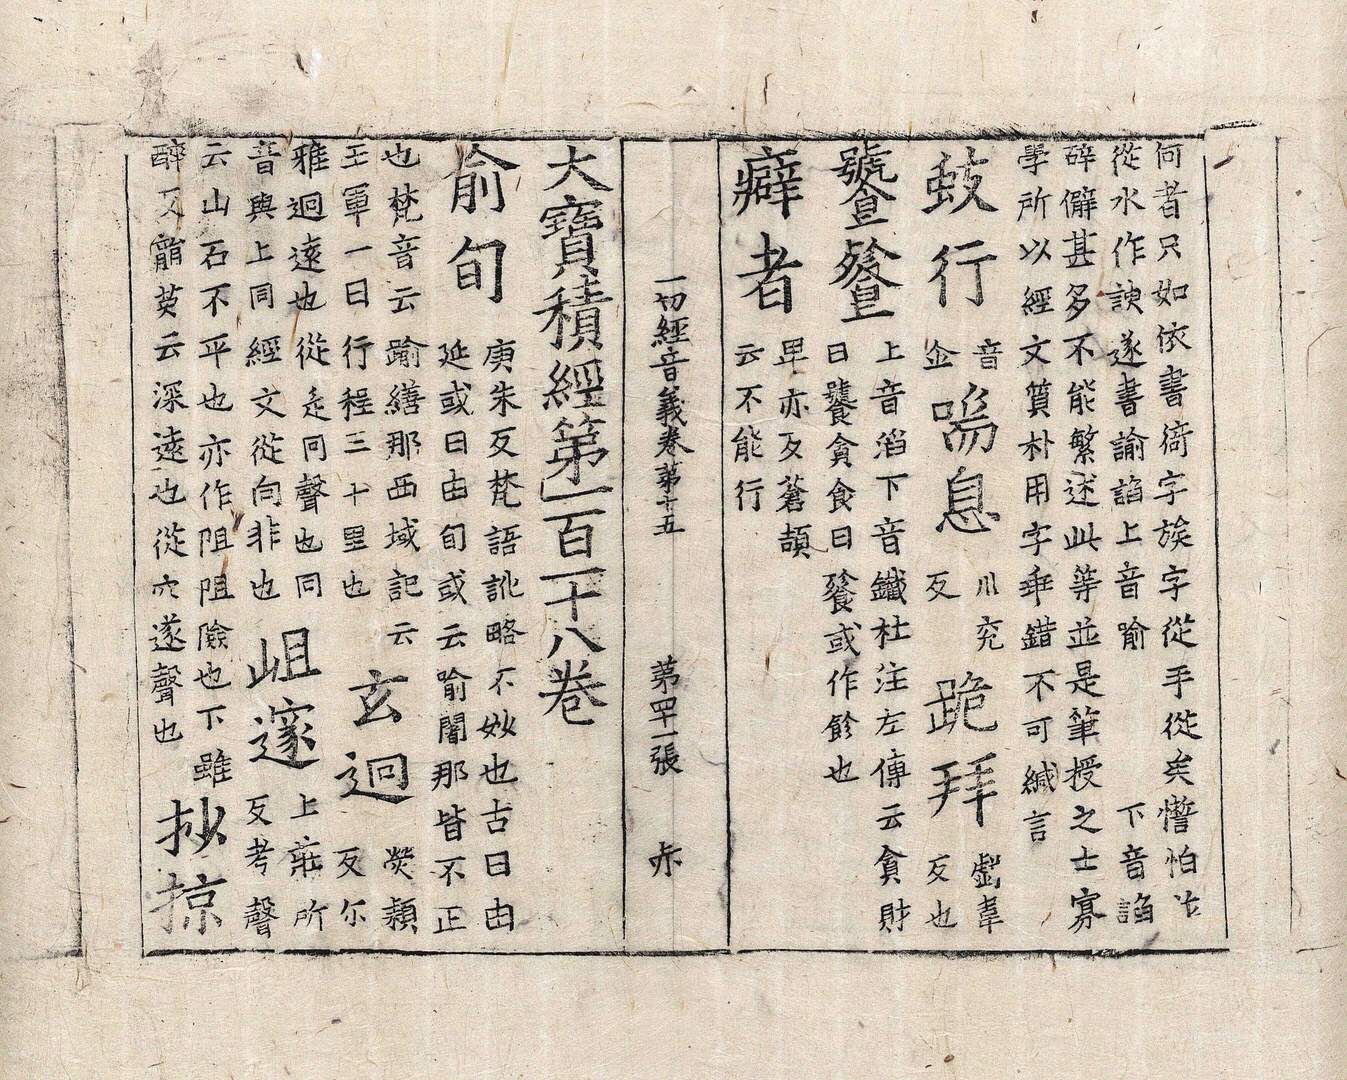 何者只如依書衛字族字從手從矣怕
從水作諛遂書諭諂上音喻 下音諂
碎僻甚多不能繁述此等並是筆授之士寡
學所以經文質朴用字乖錯不可緘言
蚑行 音金 喘息 川兖反 跪拜 虧葦反也
饕餮 上音滔下音鐵杜注左傳云貪財
曰饕貪食曰餮或作飻也
癖者 早亦反蒼頡
云不能行
一切經音義卷第十五 第四十一張 赤
大寶積經第一百一十八卷
俞旬 庚朱反梵語訛略不妙也古曰由
延或曰由旬或云喻闍那皆不正
也梵音云踰繕那西域記云
王軍一日行程三十里也 玄迥 熒穎反尒
雅迥遠也從辵冋聲也同
音與上同經文從向非也 岨邃 上莊所反考聲
云山石不平也亦作阻阻險也下雖
醉反爾英云深遠也從穴遂聲也 抄掠